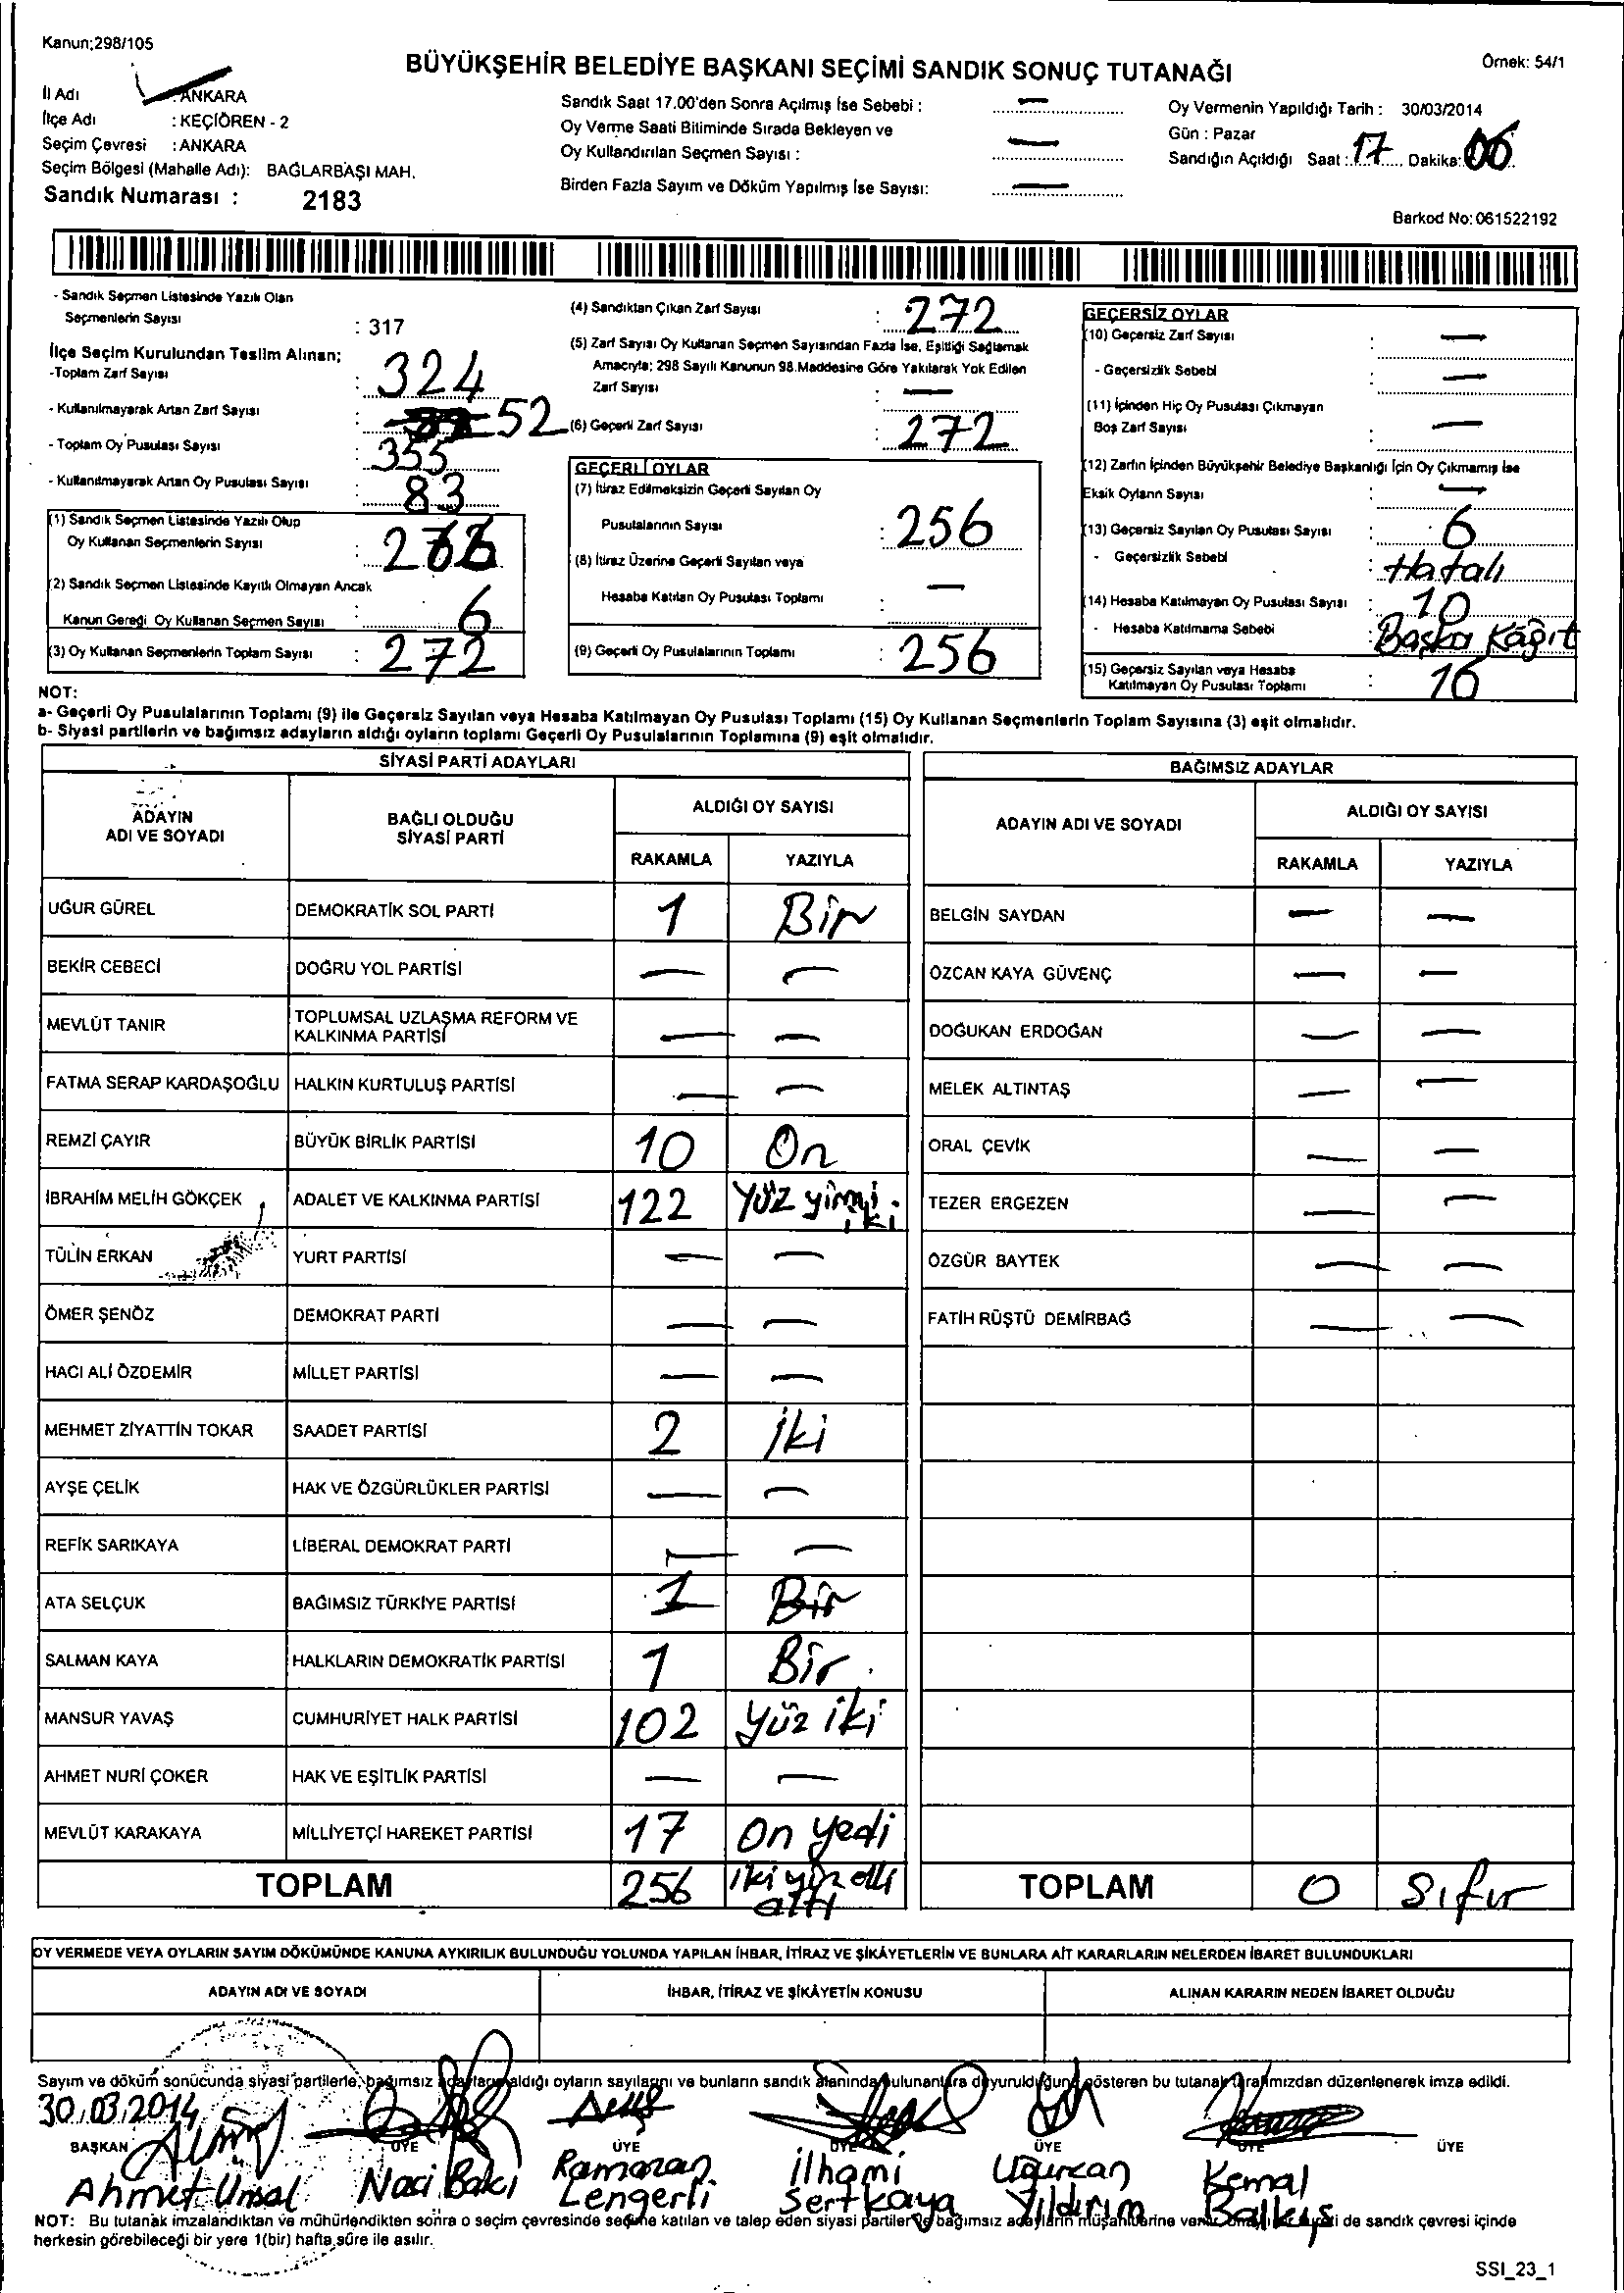 Kanun;298/105
BÜYÜKŞEHİR BELEDİYE BAŞKANI SEÇİMİ SANDIK SONUÇ TUTANAĞI
Örnek: 54/1
İl Adı : ANKARA
İlçe Adı : KEÇİÖREN - 2
Seçim Çevresi : ANKARA
Seçim Bölgesi (Mahalle Adı): BAĞLARBAŞI MAH.
Sandık Numarası : 2183
Sandık Saat 17.00'den Sonra Açılmış İse Sebebi : —
Oy Verme Saati Bitiminde Sırada Bekleyen ve
Oy Kullandırılan Seçmen Sayısı : —
Birden Fazla Sayım ve Döküm Yapılmış İse Sayısı: —
Oy Vermenin Yapıldığı Tarih : 30/03/2014
Gün : Pazar
Sandığın Açıldığı Saat : 17 Dakika: 06
Barkod No: 061522192
- Sandık Seçmen Listesinde Yazılı Olan
Seçmenlerin Sayısı : 317
İlçe Seçim Kurulundan Teslim Alınan;
-Toplam Zarf Sayısı : 324
- Kullanılmayarak Artan Zarf Sayısı : 52
- Toplam Oy Pusulası Sayısı : 355
- Kullanılmayarak Artan Oy Pusulası Sayısı : 83
(1) Sandık Seçmen Listesinde Yazılı Olup
Oy Kullanan Seçmenlerin Sayısı : 266
(2) Sandık Seçmen Listesinde Kayıtlı Olmayan Ancak
Kanun Gereği Oy Kullanan Seçmen Sayısı : 6
(3) Oy Kullanan Seçmenlerin Toplam Sayısı : 272
(4) Sandıktan Çıkan Zarf Sayısı : 272
(5) Zarf Sayısı Oy Kullanan Seçmen Sayısından Fazla İse, Eşitliği Sağlamak
Amacıyla; 298 Sayılı Kanunun 98.Maddesine Göre Yakılarak Yok Edilen
Zarf Sayısı : —
(6) Geçerli Zarf Sayısı : 272
GEÇERLİ OYLAR
(7) İtiraz Edilmeksizin Geçerli Sayılan Oy
Pusulalarının Sayısı : 256
(8) İtiraz Üzerine Geçerli Sayılan veya
Hesaba Katılan Oy Pusulası Toplamı : —
(9) Geçerli Oy Pusulalarının Toplamı : 256
GEÇERSİZ OYLAR
(10) Geçersiz Zarf Sayısı : —
- Geçersizlik Sebebi : —
(11) İçinden Hiç Oy Pusulası Çıkmayan
Boş Zarf Sayısı : —
(12) Zarfın İçinden Büyükşehir Belediye Başkanlığı İçin Oy Çıkmamış İse
Eksik Oyların Sayısı : —
(13) Geçersiz Sayılan Oy Pusulası Sayısı : 6
- Geçersizlik Sebebi : Hatalı
(14) Hesaba Katılmayan Oy Pusulası Sayısı : 10
- Hesaba Katılmama Sebebi : Başka Kağıt
(15) Geçersiz Sayılan veya Hesaba
Katılmayan Oy Pusulası Toplamı : 16
NOT:
a- Geçerli Oy Pusulalarının Toplamı (9) ile Geçersiz Sayılan veya Hesaba Katılmayan Oy Pusulası Toplamı (15) Oy Kullanan Seçmenlerin Toplam Sayısına (3) eşit olmalıdır.
b- Siyasi partilerin ve bağımsız adayların aldığı oyların toplamı Geçerli Oy Pusulalarının Toplamına (9) eşit olmalıdır.
SİYASİ PARTİ ADAYLARI
ADAYIN ADI VE SOYADI
BAĞLI OLDUĞU SİYASİ PARTİ
ALDIĞI OY SAYISI
RAKAMLA YAZIYLA
UĞUR GÜREL DEMOKRATİK SOL PARTİ 1 Bir
BEKİR CEBECİ DOĞRU YOL PARTİSİ — —
MEVLÜT TANIR TOPLUMSAL UZLAŞMA REFORM VE KALKINMA PARTİSİ — —
FATMA SERAP KARDAŞOĞLU HALKIN KURTULUŞ PARTİSİ — —
REMZİ ÇAYIR BÜYÜK BİRLİK PARTİSİ 10 On
İBRAHİM MELİH GÖKÇEK ADALET VE KALKINMA PARTİSİ 122 Yüz yirmi iki
TÜLİN ERKAN YURT PARTİSİ — —
ÖMER ŞENÖZ DEMOKRAT PARTİ — —
HACI ALİ ÖZDEMİR MİLLET PARTİSİ — —
MEHMET ZİYATTİN TOKAR SAADET PARTİSİ 2 İki
AYŞE ÇELİK HAK VE ÖZGÜRLÜKLER PARTİSİ — —
REFİK SARIKAYA LİBERAL DEMOKRAT PARTİ — —
ATA SELÇUK BAĞIMSIZ TÜRKİYE PARTİSİ 1 Bir
SALMAN KAYA HALKLARIN DEMOKRATİK PARTİSİ 1 Bir
MANSUR YAVAŞ CUMHURİYET HALK PARTİSİ 102 Yüz iki
AHMET NURİ ÇOKER HAK VE EŞİTLİK PARTİSİ — —
MEVLÜT KARAKAYA MİLLİYETÇİ HAREKET PARTİSİ 17 On yedi
TOPLAM 256 iki yüz elli altı
BAĞIMSIZ ADAYLAR
ADAYIN ADI VE SOYADI
ALDIĞI OY SAYISI
RAKAMLA YAZIYLA
BELGİN SAYDAN — —
ÖZCAN KAYA GÜVENÇ — —
DOĞUKAN ERDOĞAN — —
MELEK ALTINTAŞ — —
ORAL ÇEVİK — —
TEZER ERGEZEN — —
ÖZGÜR BAYTEK — —
FATİH RÜŞTÜ DEMİRBAĞ — —
TOPLAM 0 Sıfır
OY VERMEDE VEYA OYLARIN SAYIM DÖKÜMÜNDE KANUNA AYKIRILIK BULUNDUĞU YOLUNDA YAPILAN İHBAR, İTİRAZ VE ŞİKÂYETLERİN VE BUNLARA AİT KARARLARIN NELERDEN İBARET BULUNDUKLARI
ADAYIN ADI VE SOYADI
İHBAR, İTİRAZ VE ŞİKÂYETİN KONUSU
ALINAN KARARIN NEDEN İBARET OLDUĞU
Sayım ve döküm sonucunda siyasi partilerle, bağımsız adayların aldığı oyların sayılarını ve bunların sandık alanında bulunanlara duyurulduğunu gösteren bu tutanak tarafımızdan düzenlenerek imza edildi.
30.03.2014
BAŞKAN ÜYE ÜYE ÜYE ÜYE ÜYE ÜYE
Ahmet Ünsal Naci Balcı Ramazan Lengerli İlhami Sertkaya Uğurcan Yıldırım Kemal Balkış
NOT: Bu tutanak imzalandıktan ve mühürlendikten sonra o seçim çevresinde seçime katılan ve talep eden siyasi partiler ve bağımsız adayların müşahitlerine verilir, onaylı bir sureti de sandık çevresi içinde
herkesin görebileceği bir yere 1(bir) hafta süre ile asılır.
SSI_23_1